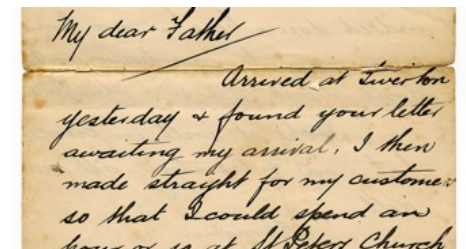 My dear Father
Arrived at Tiverton
yesterday & found your letter
awaiting my arrival. I then
made straight for my customer
so that I could spend an
hour or so at St Peters Church